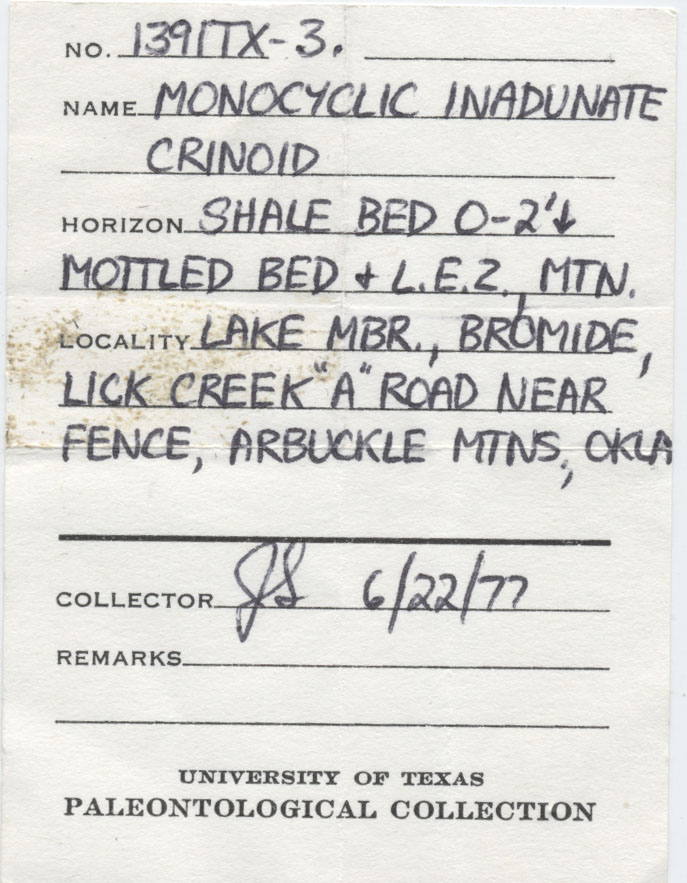 NO. 1391TX-3.
NAME MONOCYCLIC INADUNATE
CRINOID
HORIZON SHALE BED 0-2'↓
MOTTLED BED + L.E.Z., MTN.
LOCALITY LAKE MBR., BROMIDE,
LICK CREEK "A" ROAD NEAR
FENCE, ARBUCKLE MTNS., OKLA
COLLECTOR JS 6/22/77
REMARKS
UNIVERSITY OF TEXAS
PALEONTOLOGICAL COLLECTION